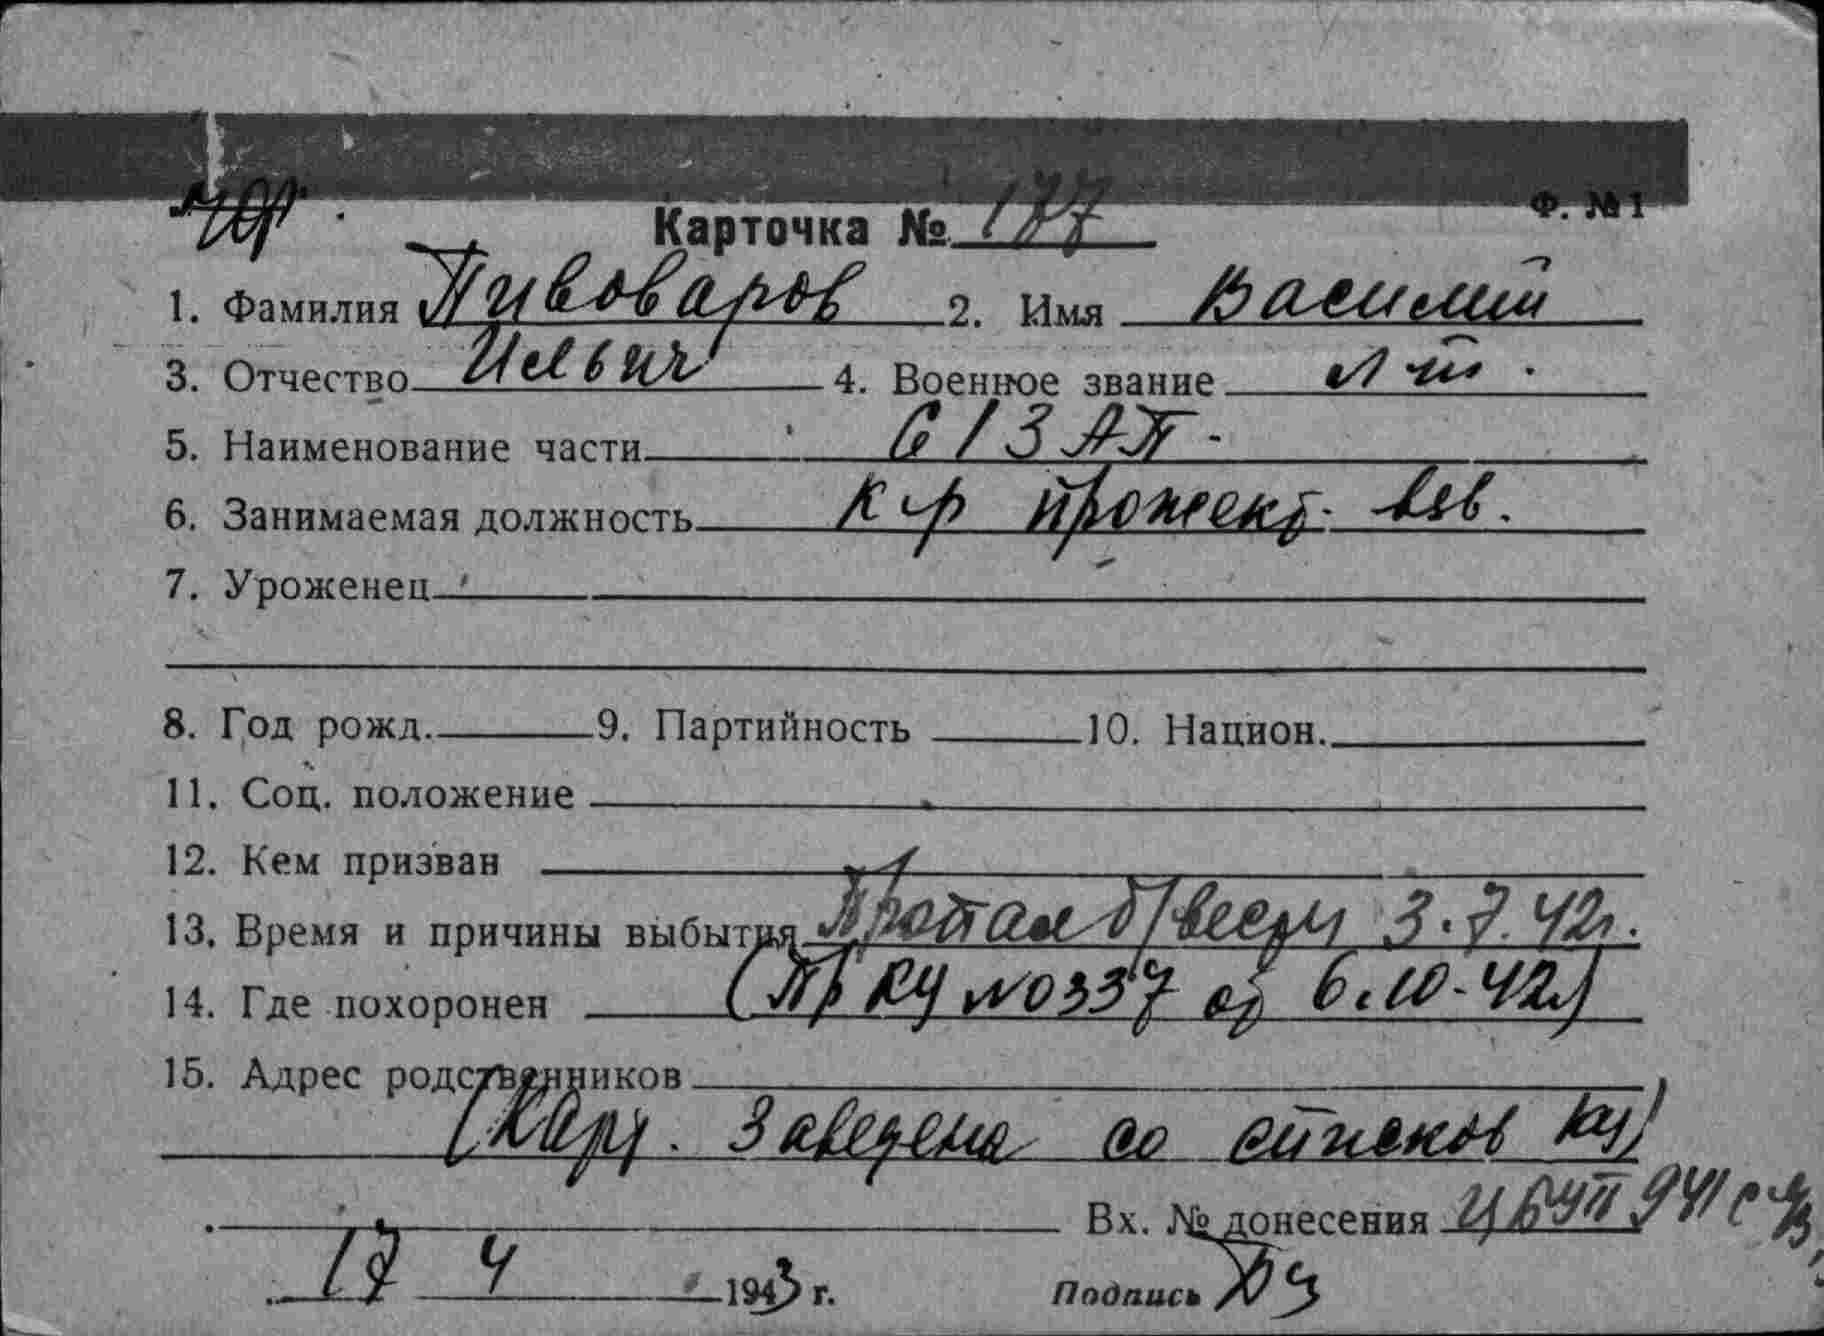 Ф. №1
Карточка № 177
1. Фамилия Пивоваров 2. Имя Василий
3. Отчество Ильич 4. Военное звание л-т.
5. Наименование части 613 АП.
6. Занимаемая должность к-р прожект. взв.
7. Уроженец
8. Год рожд. 9. Партийность 10. Национ.
11. Соц. положение
12. Кем призван
13. Время и причины выбытия Пропал б/вести 3.7.42г.
14. Где похоронен (Пр КУ №0337 от 6.10.42г)
15. Адрес родственников
(Карт. заведена со списков КУ)
Вх. № донесения ЦБУП 941с
17 4 1943 г. Подпись